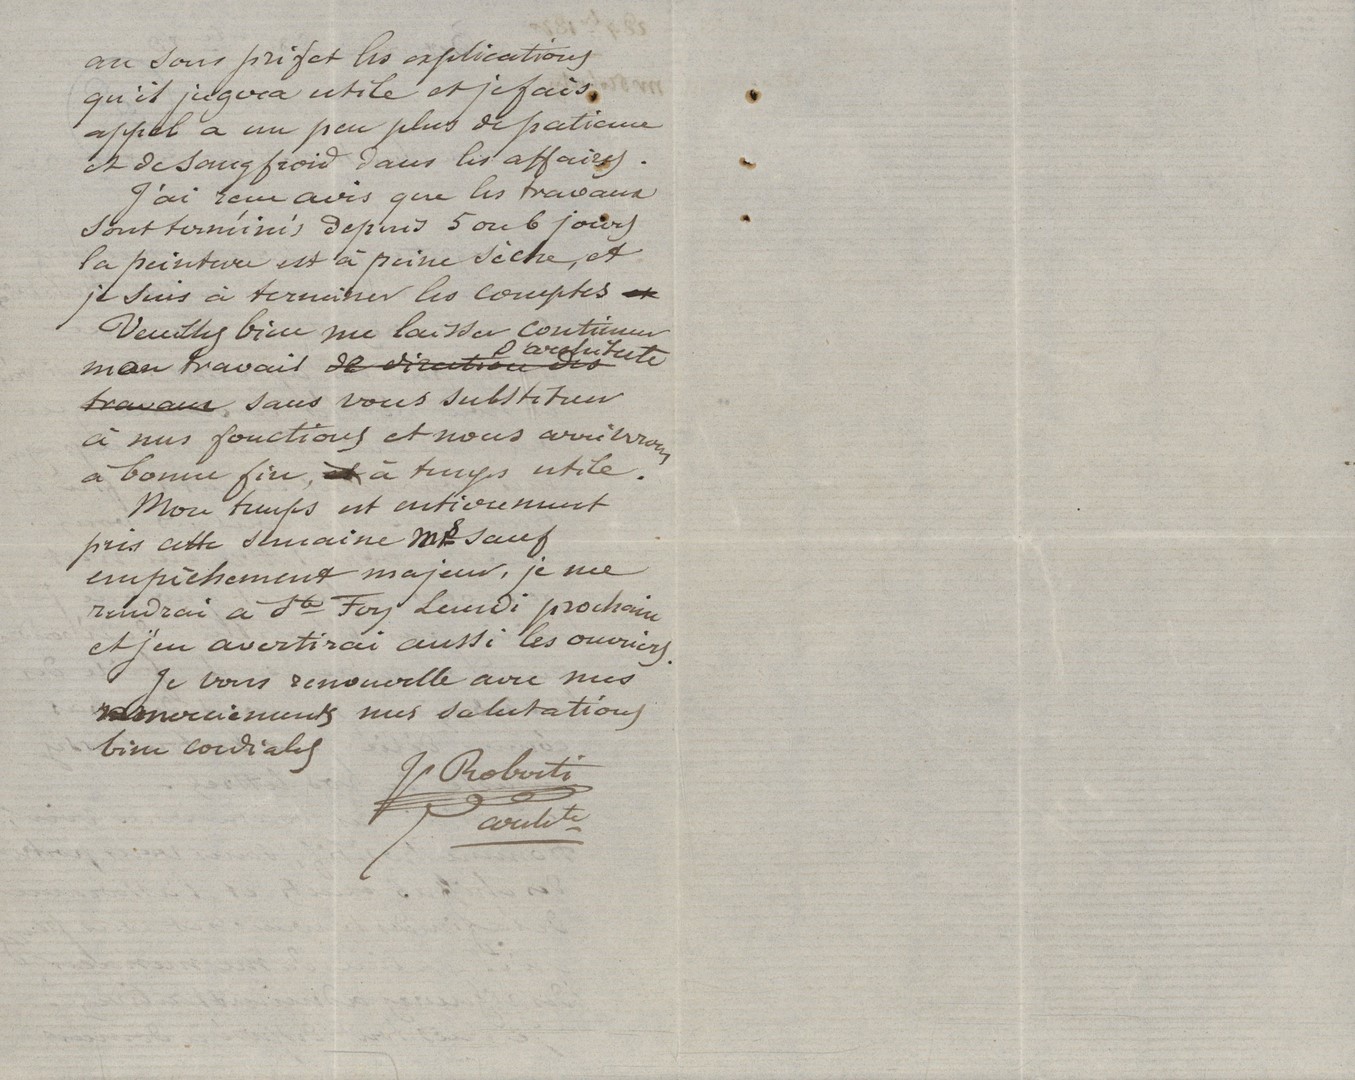 au sous préfet les explications
qu'il jugera utile et je fais
appel a un peu plus de patience
et de sang froid dans les affaires.
J'ai reçu avis que les travaux
sont terminés depuis 5 ou 6 jours
la peinture est à peine sèche, et
je suis à terminer les comptes et
Veuillez bien me laisser continuer
d'architecte
mon travail de direction des
travaux sans vous substituer
à mes fonctions et nous arriverons
à bonne fin, et à temps utile.
Mon temps est entierement
pris cette semaine Mr sauf
empêchement majeur, je me
rendrai à Ste Foy Lundi prochain
et j'en avertirai aussi les ouvriers.
Je vous renouvelle avec mes
remerciements mes salutations
bien cordiales
Roberti
archte